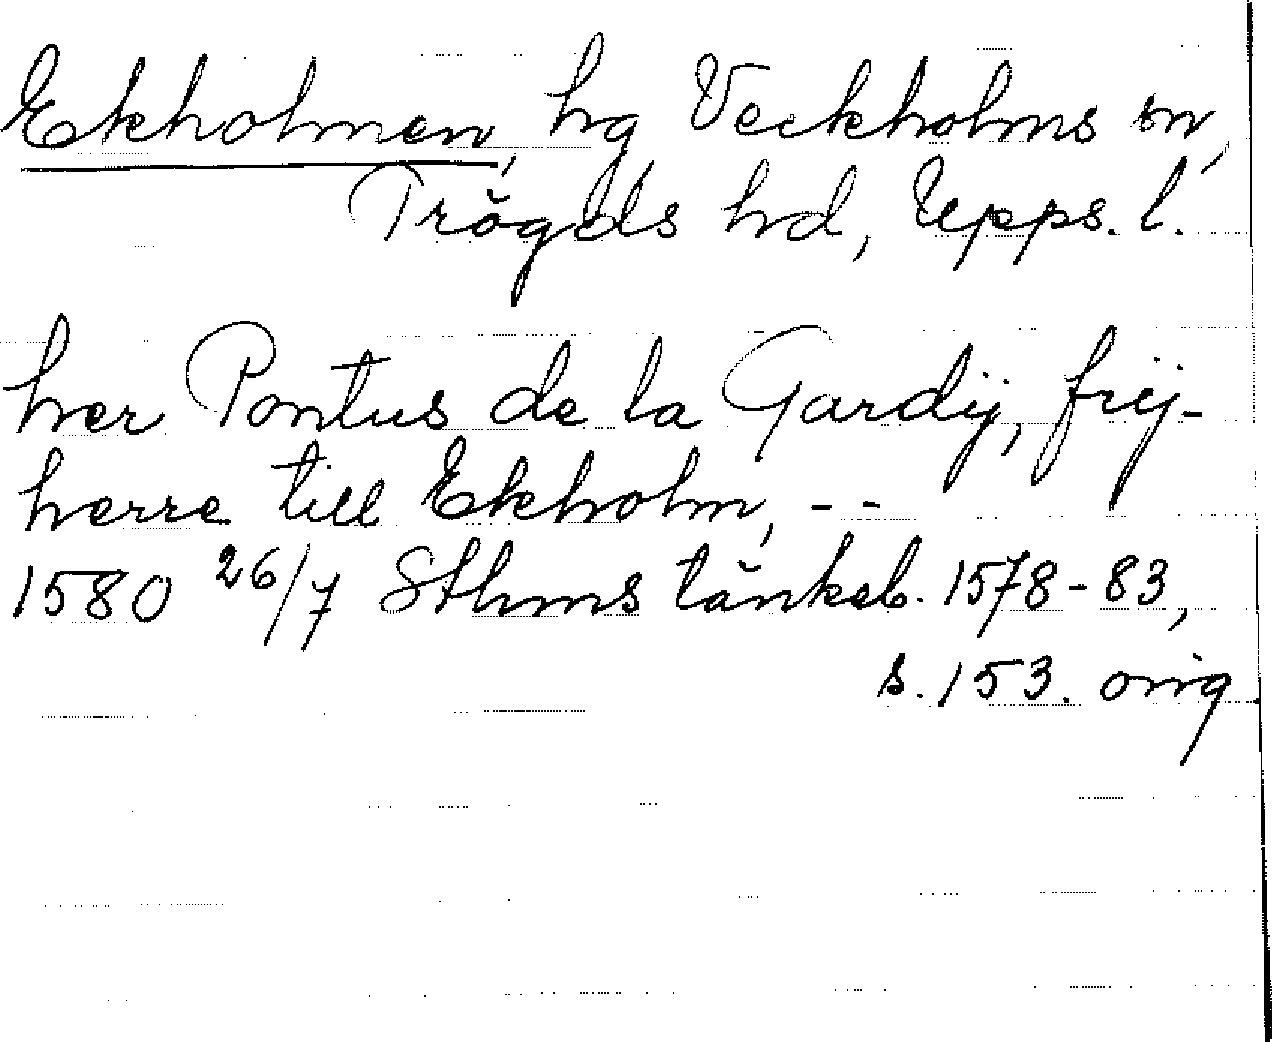 Ekholmen, hg Veckholms sn,
Trögds hd, Upps. l.
her Pontus de la Gardij, frij-
herre till Ekholm, - -
1580 26/7 Sthms tänkeb. 1578-83,
s. 153. orig.